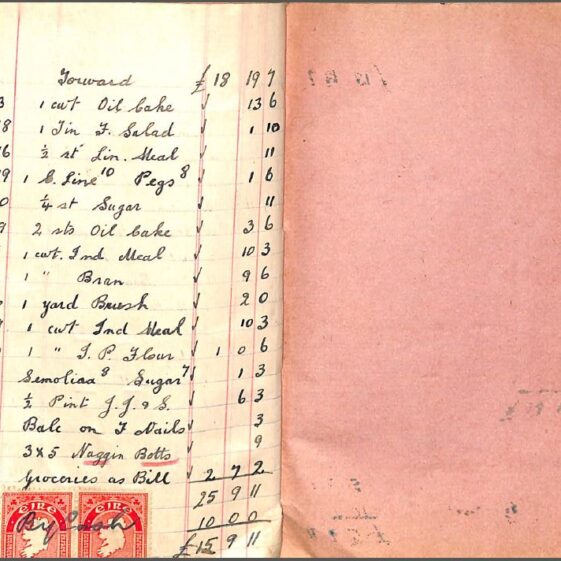 Forward £ 18 19 7
3 1 cwt Oil Cake √ 13 6
8 1 Tin F. Salad √ 1 10
6 ½ st Lin. Meal √ 11
9 1 C. Line 10 Pegs 8 √ 1 6
0 ¼ st Sugar √ 11
9 2 sts Oil Cake √ 3 6
1 cwt. Ind Meal √ 10 3
1 " Bran √ 9 6
1 yard Brush √ 2 0
1 cwt Ind Meal √ 10 3
1 " I. P. Flour √ 1 0 6
Semoliaa 8 Sugar 7 √ 1 3
½ Pint J. J. & S. 6 3
Balc on F Nails √ 3
3 x 5 Naggin Botts 9
Groceries as Bill √ 2 7 2
25 9 11
ÉIRE ÉIRE
By Cash 10 0 0
£15 9 11